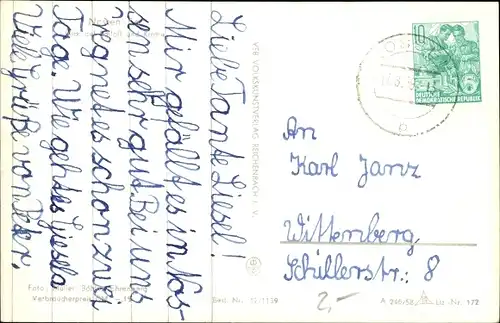 Nossen
Liebe Tante Liesel!
Mir gefällt es in Nos-
sen sehr gut. Bei uns
regnet es schon zwei
Tage. Wie geht es Gisela
Viele grüße von Peter.
VEB VOLKSKUNSTVERLAG REICHENBACH I. V.
DEUTSCHE
DEMOKRATISCHE REPUBLIK
6
An
Karl Janz
Wittenberg
Schillerstr.: 8
2,-
Verbraucherpreis
Best. Nr. 12/1139
A 246/58 Liz.-Nr. 172